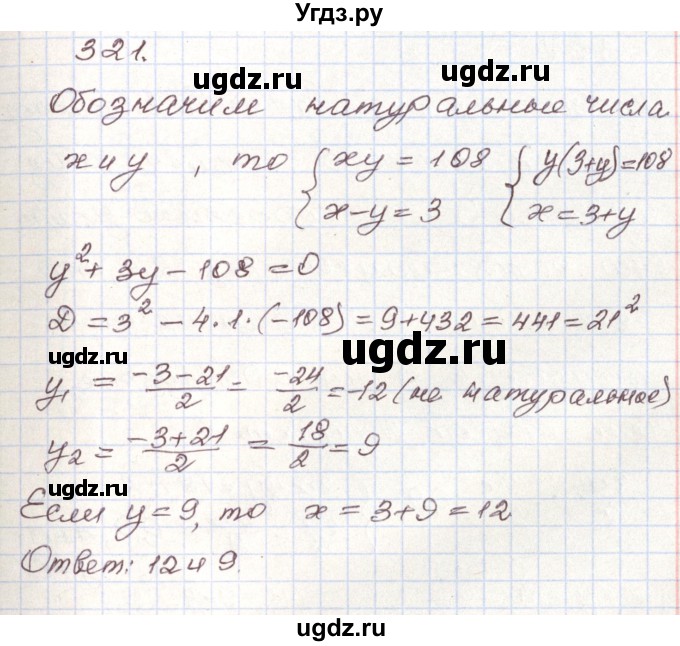 Угдз.ру
321.
ugdz.ru ugdz.ru
Обозначим натуральные числа
x и y, то { xy = 108 { y(3+y)=108
x-y=3 x=3+y
y²+3y-108=0
D=3²-4·1·(-108)=9+432=441=21²
ugdz.ru
ugdz.ru
y₁ = (-3-21)/2 = -24/2 = -12 (не натуральное)
y₂ = (-3+21)/2 = 18/2 = 9
ugdz.ru ugdz.ru
Если y=9, то x=3+9=12
Ответ: 12 и 9.
ugdz.ru
ugdz.ru